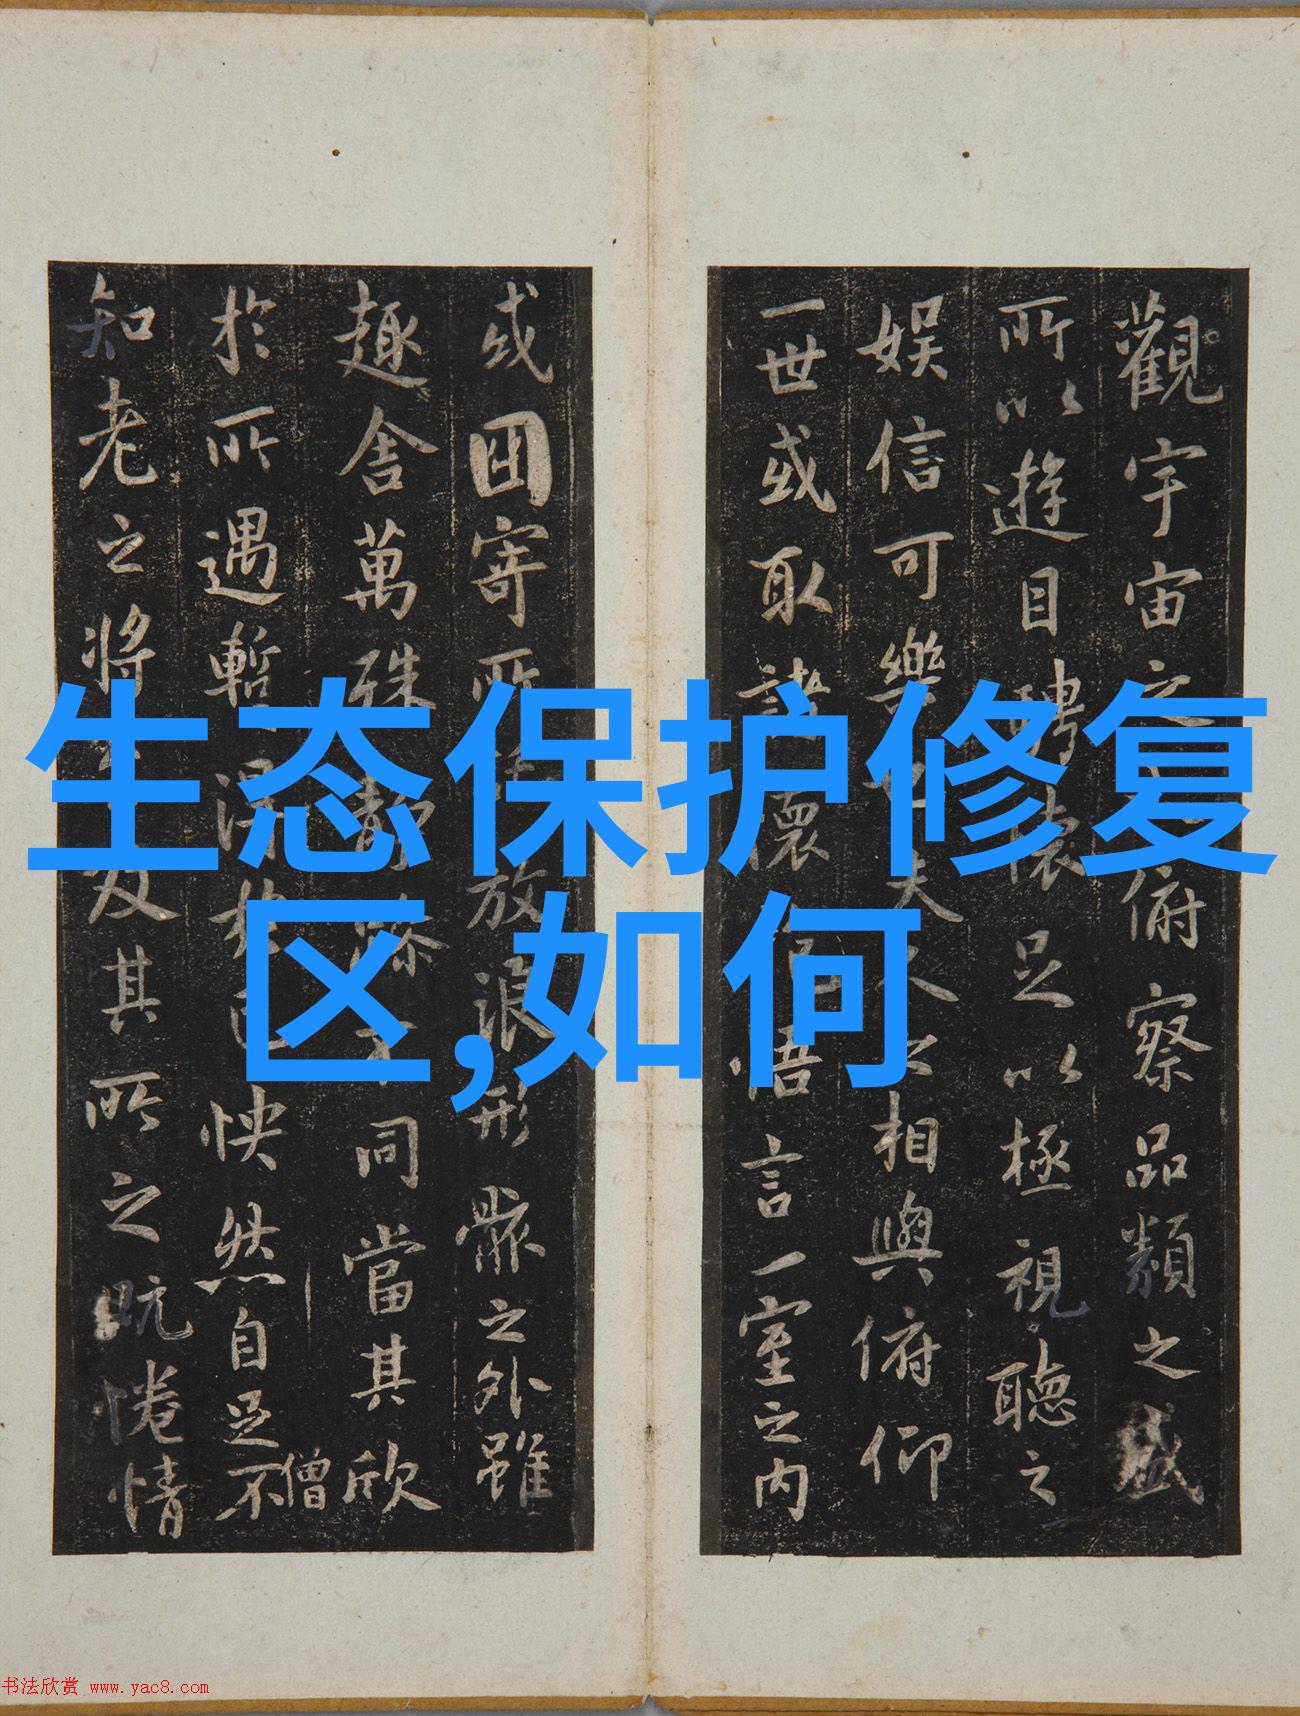 觀宇宙之俯察品類之盛
所以遊目騁懷足以極視聽之
娱信可樂夫人之相與俯仰
一世或取諸懷悟言一室之内
或因寄所放浪形骸之外雖
趣舍萬殊静躁不同當其欣
於所遇暫得於己怏然自足不
僧
知老之將及其所之既惓情
生态保护修复
区,如何
书法欣赏 www.yac8.com